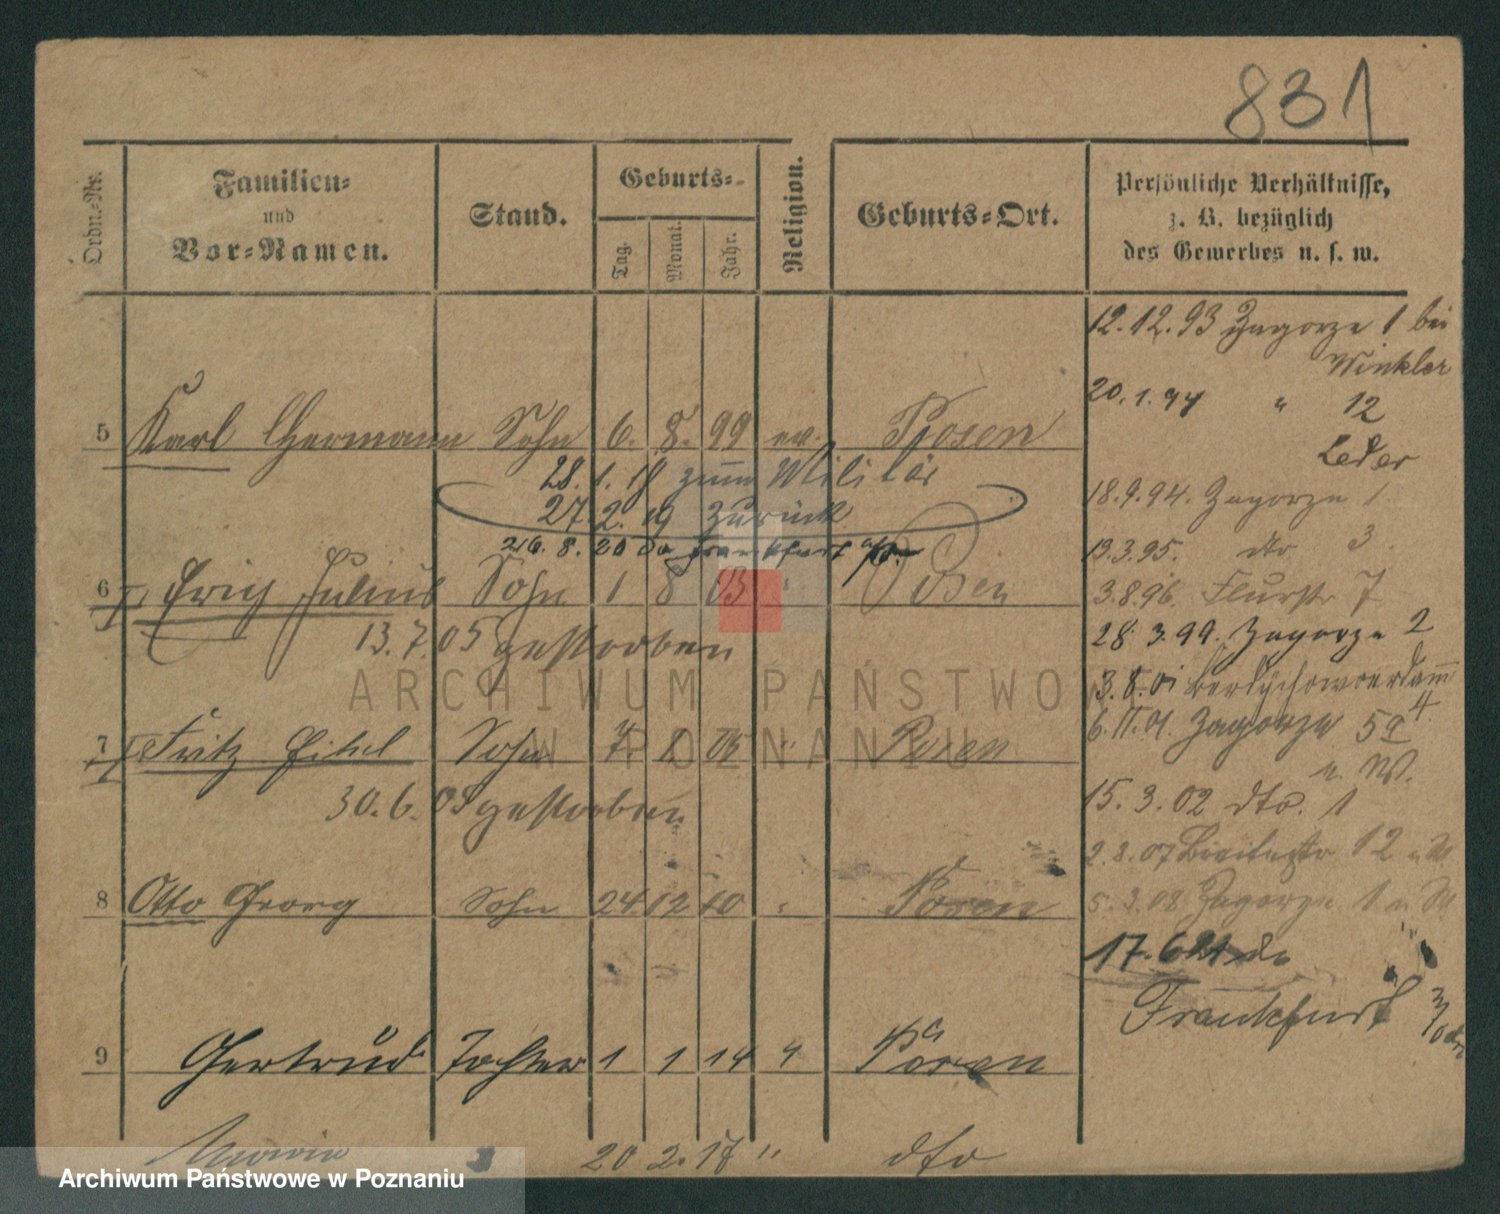 831
Ordn.-Nr.
Familien-
und
Vor-Namen.
Stand.
Geburts-
Tag.
Monat.
Jahr.
Religion.
Geburts-Ort.
Persönliche Verhältnisse,
z. B. bezüglich
des Gewerbes u. s. w.
5 Karl Hermann Sohn 6. 8. 99 ev. Posen
28. 1. 18 zum Militär
27. 2. 19 zurück
26. 8. 20 do Frankfurt
6 Erich Julius Sohn 1 8 03 " Posen
13. 7. 05 gestorben
7 Fritz Sohn 7. 1. 05 " Posen
30. 6. 05 gestorben
8 Otto Georg Sohn 24 12 10 " Posen
9 Gertrud Tochter 1 1 14 " Posen
20 2. 17 " dto
12. 12. 93 Zagorze 1 bei
Winkler
20. 1. 94 " 12
Leder
18. 9. 94. Zagorze 1.
13. 3. 95. dto 3.
3. 8. 96. Flurstr 7
28. 3. 99. Zagorze 2
3. 8. 01 Berdychowoerdamm
4
6. 11. 01. Zagorze 5a
u. W.
15. 3. 02 dto. 1
2. 8. 07 Breitestr 12
5. 3. 08 Zagorze 1
17. 6 21 do
Frankfurt
ARCHIWUM PAŃSTWOWE
W POZNANIU
Archiwum Państwowe w Poznaniu